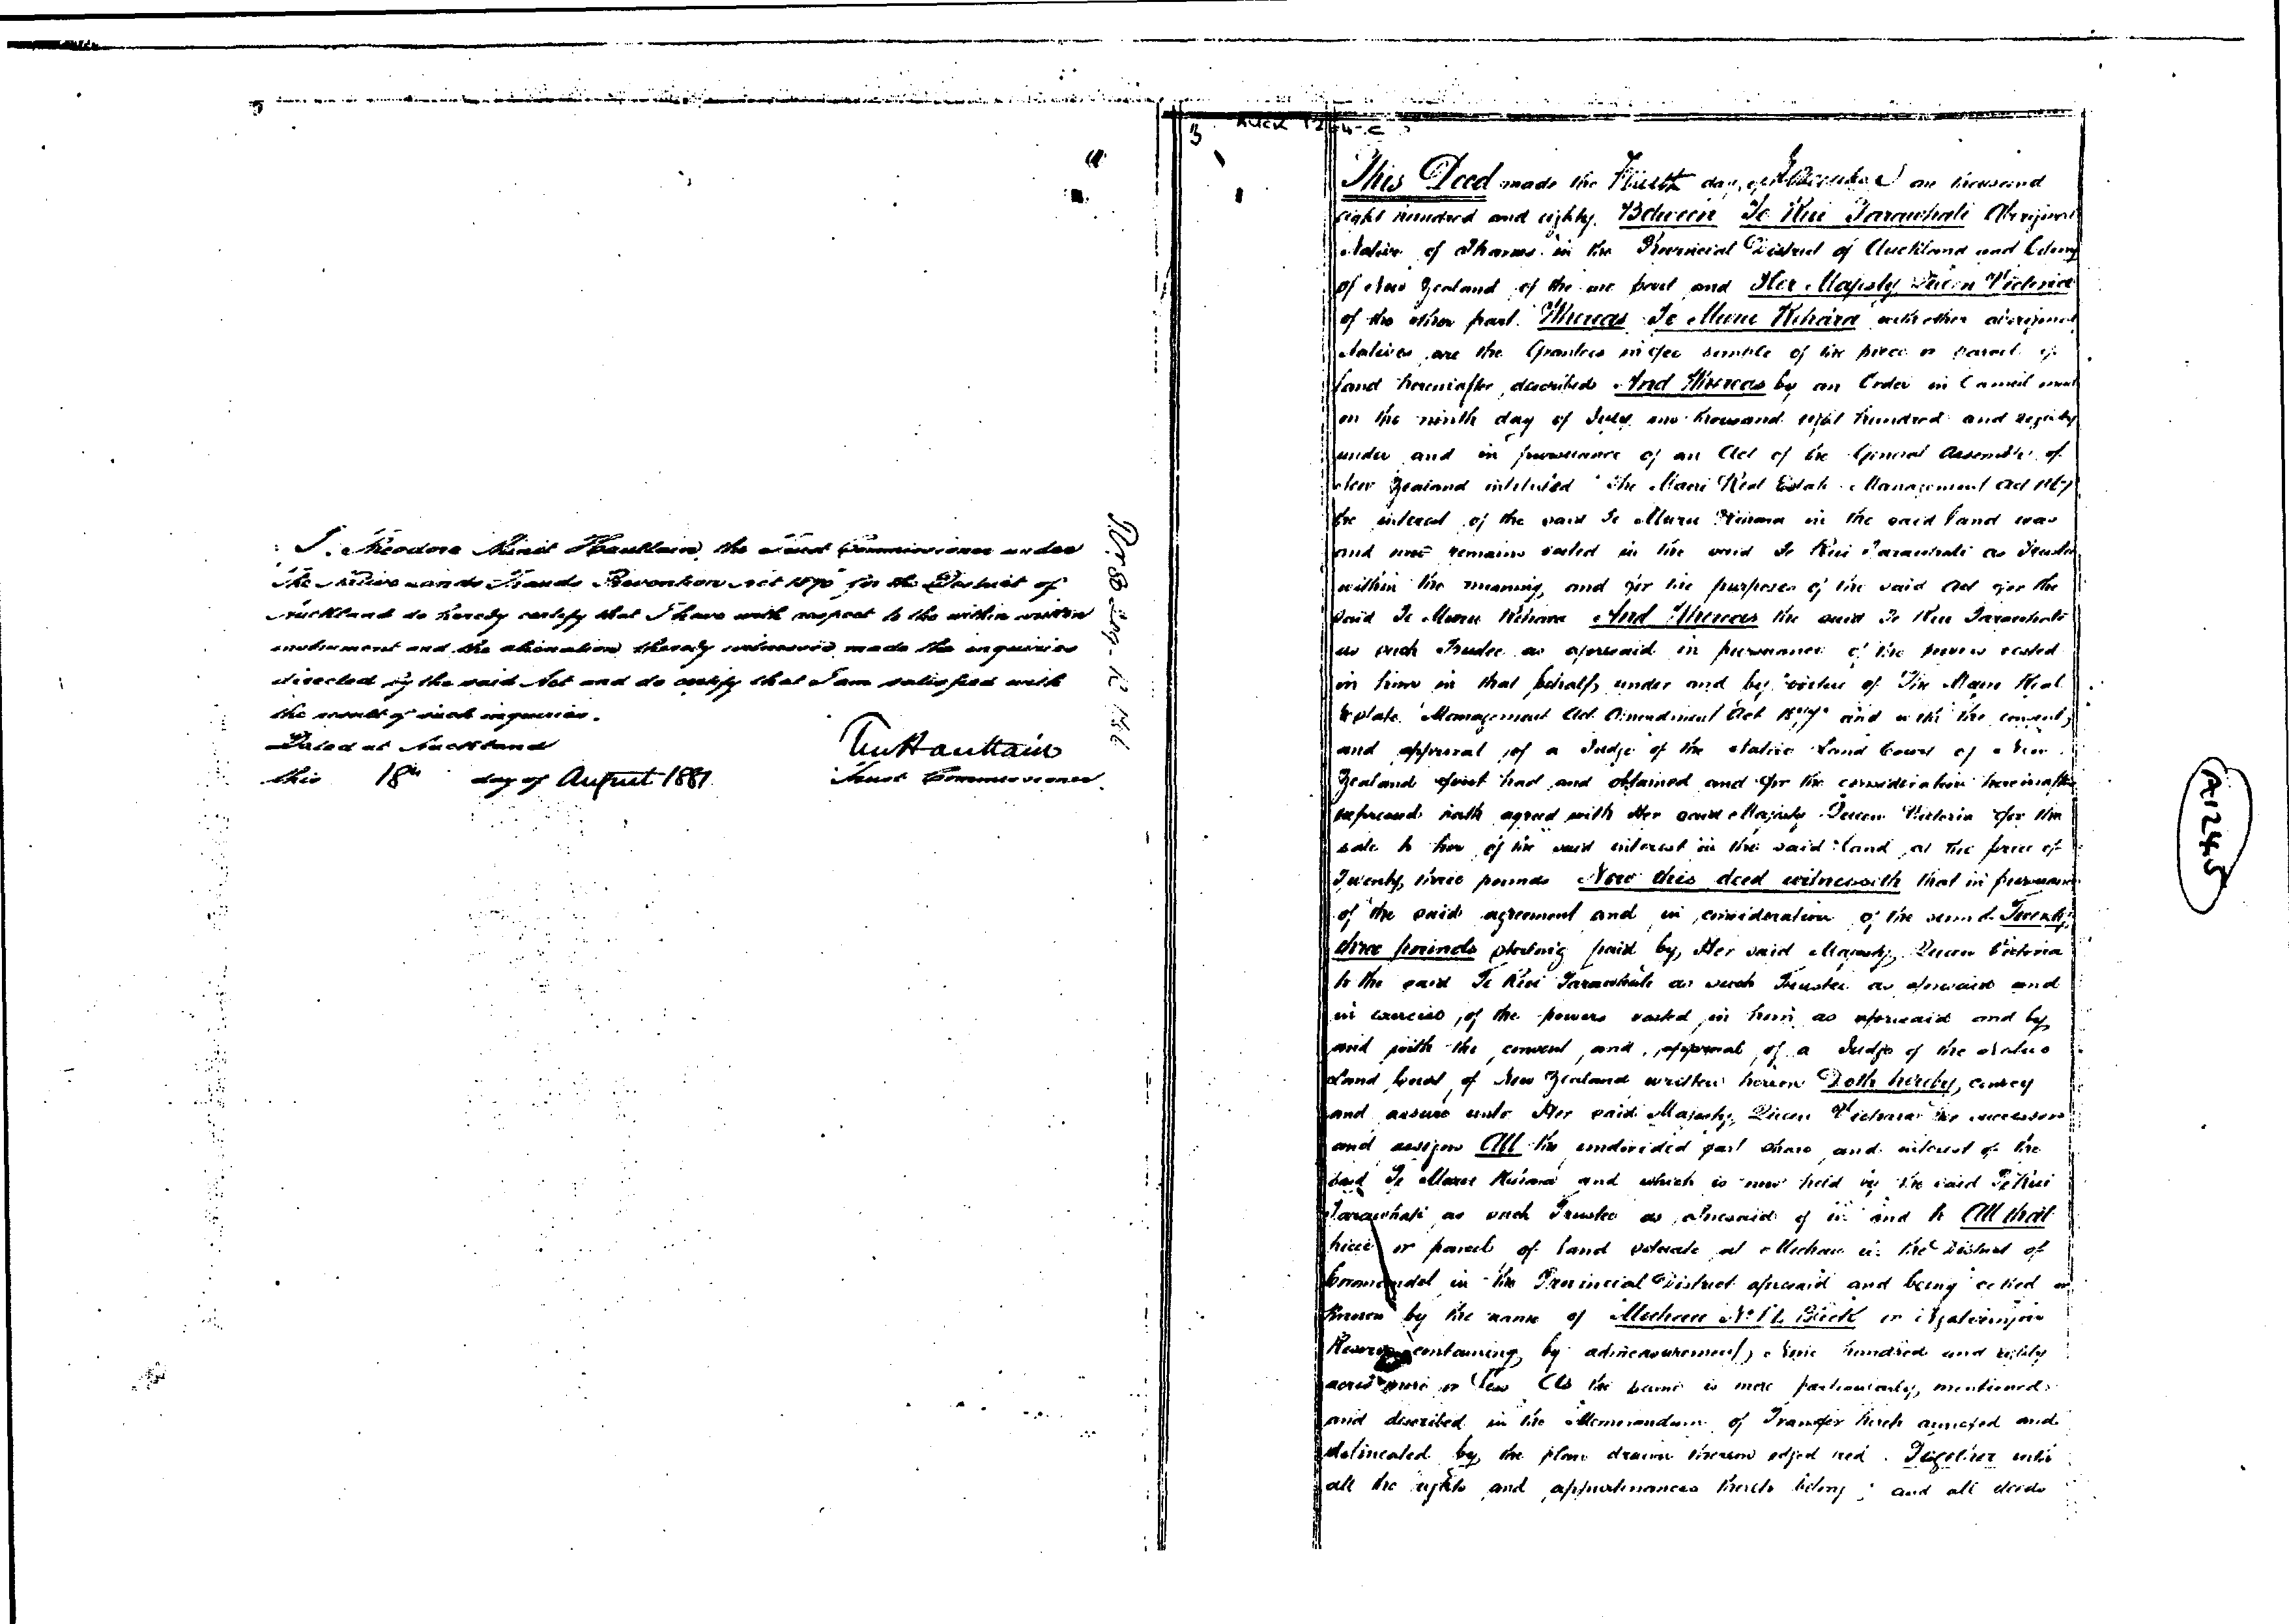 I. Theodore Minet Haultain the Trust Commissioner under
The Native Lands Frauds Prevention Act 1870 for the District of
Auckland do hereby certify that I have with respect to the within written
instrument and the alienation thereby witnessed made the inquiries
directed by the said Act and do certify that I am satisfied with
the result of such inquiries.
Dated at Auckland
this 18th day of August 1881
TM Haultain
Trust Commissioner.
3
This Deed made the day of one thousand
eight hundred and eighty Between Te Kui Tarawhati Aboriginal
Native of Thames in the Provincial District of Auckland and Colony
of New Zealand of the one part and Her Majesty Queen Victoria
of the other part. Whereas Te Muru Kihara with other aboriginal
Natives are the Grantees in fee simple of the piece or parcel of
land hereinafter described And Whereas by an Order in Council made
on the ninth day of July one thousand eight hundred and eighty
under and in pursuance of an Act of the General Assembly of
New Zealand intituled "The Maori Real Estate Management Act 1867
the interest of the said Te Muru Kihara in the said land was
and now remains vested in the said Te Kui Tarawhati as Trustee
within the meaning and for the purposes of the said Act for the
said Te Muru Kihara And Whereas the said Te Kui Tarawhati
as such Trustee as aforesaid in pursuance of the powers vested
in him in that behalf under and by virtue of The Maori Real
Estate Management Act Amendment Act 1877 and with the consent
and approval of a Judge of the Native Land Court of New
Zealand first had and obtained and for the consideration hereinafter
expressed hath agreed with Her said Majesty Queen Victoria for the
sale to her of the said interest in the said land at the price of
Twenty three pounds Now this deed witnesseth that in pursuance
of the said agreement and in consideration of the sum of Twenty
three pounds sterling paid by Her said Majesty Queen Victoria
to the said Te Kui Tarawhati as such Trustee as aforesaid and
in exercise of the powers vested in him as aforesaid and by
and with the consent and approval of a Judge of the Native
Land Court of New Zealand written hereon Doth hereby convey
and assure unto Her said Majesty Queen Victoria her successors
and assigns All the undivided part share and interest of the
said Te Muru Kihara and which is now held by the said Te Kui
Tarawhati as such Trustee as aforesaid of in and to All that
piece or parcel of land situate at in the District of
Coromandel in the Provincial District aforesaid and being called or
known by the name of Block or
Reserve containing by admeasurement hundred and eighty
acres more or less As the same is more particularly mentioned
and described in the Memorandum of Transfer hereto annexed and
delineated by the plan drawn thereon edged red. Together with
all the rights and appurtenances thereto belong and all deeds
A1245